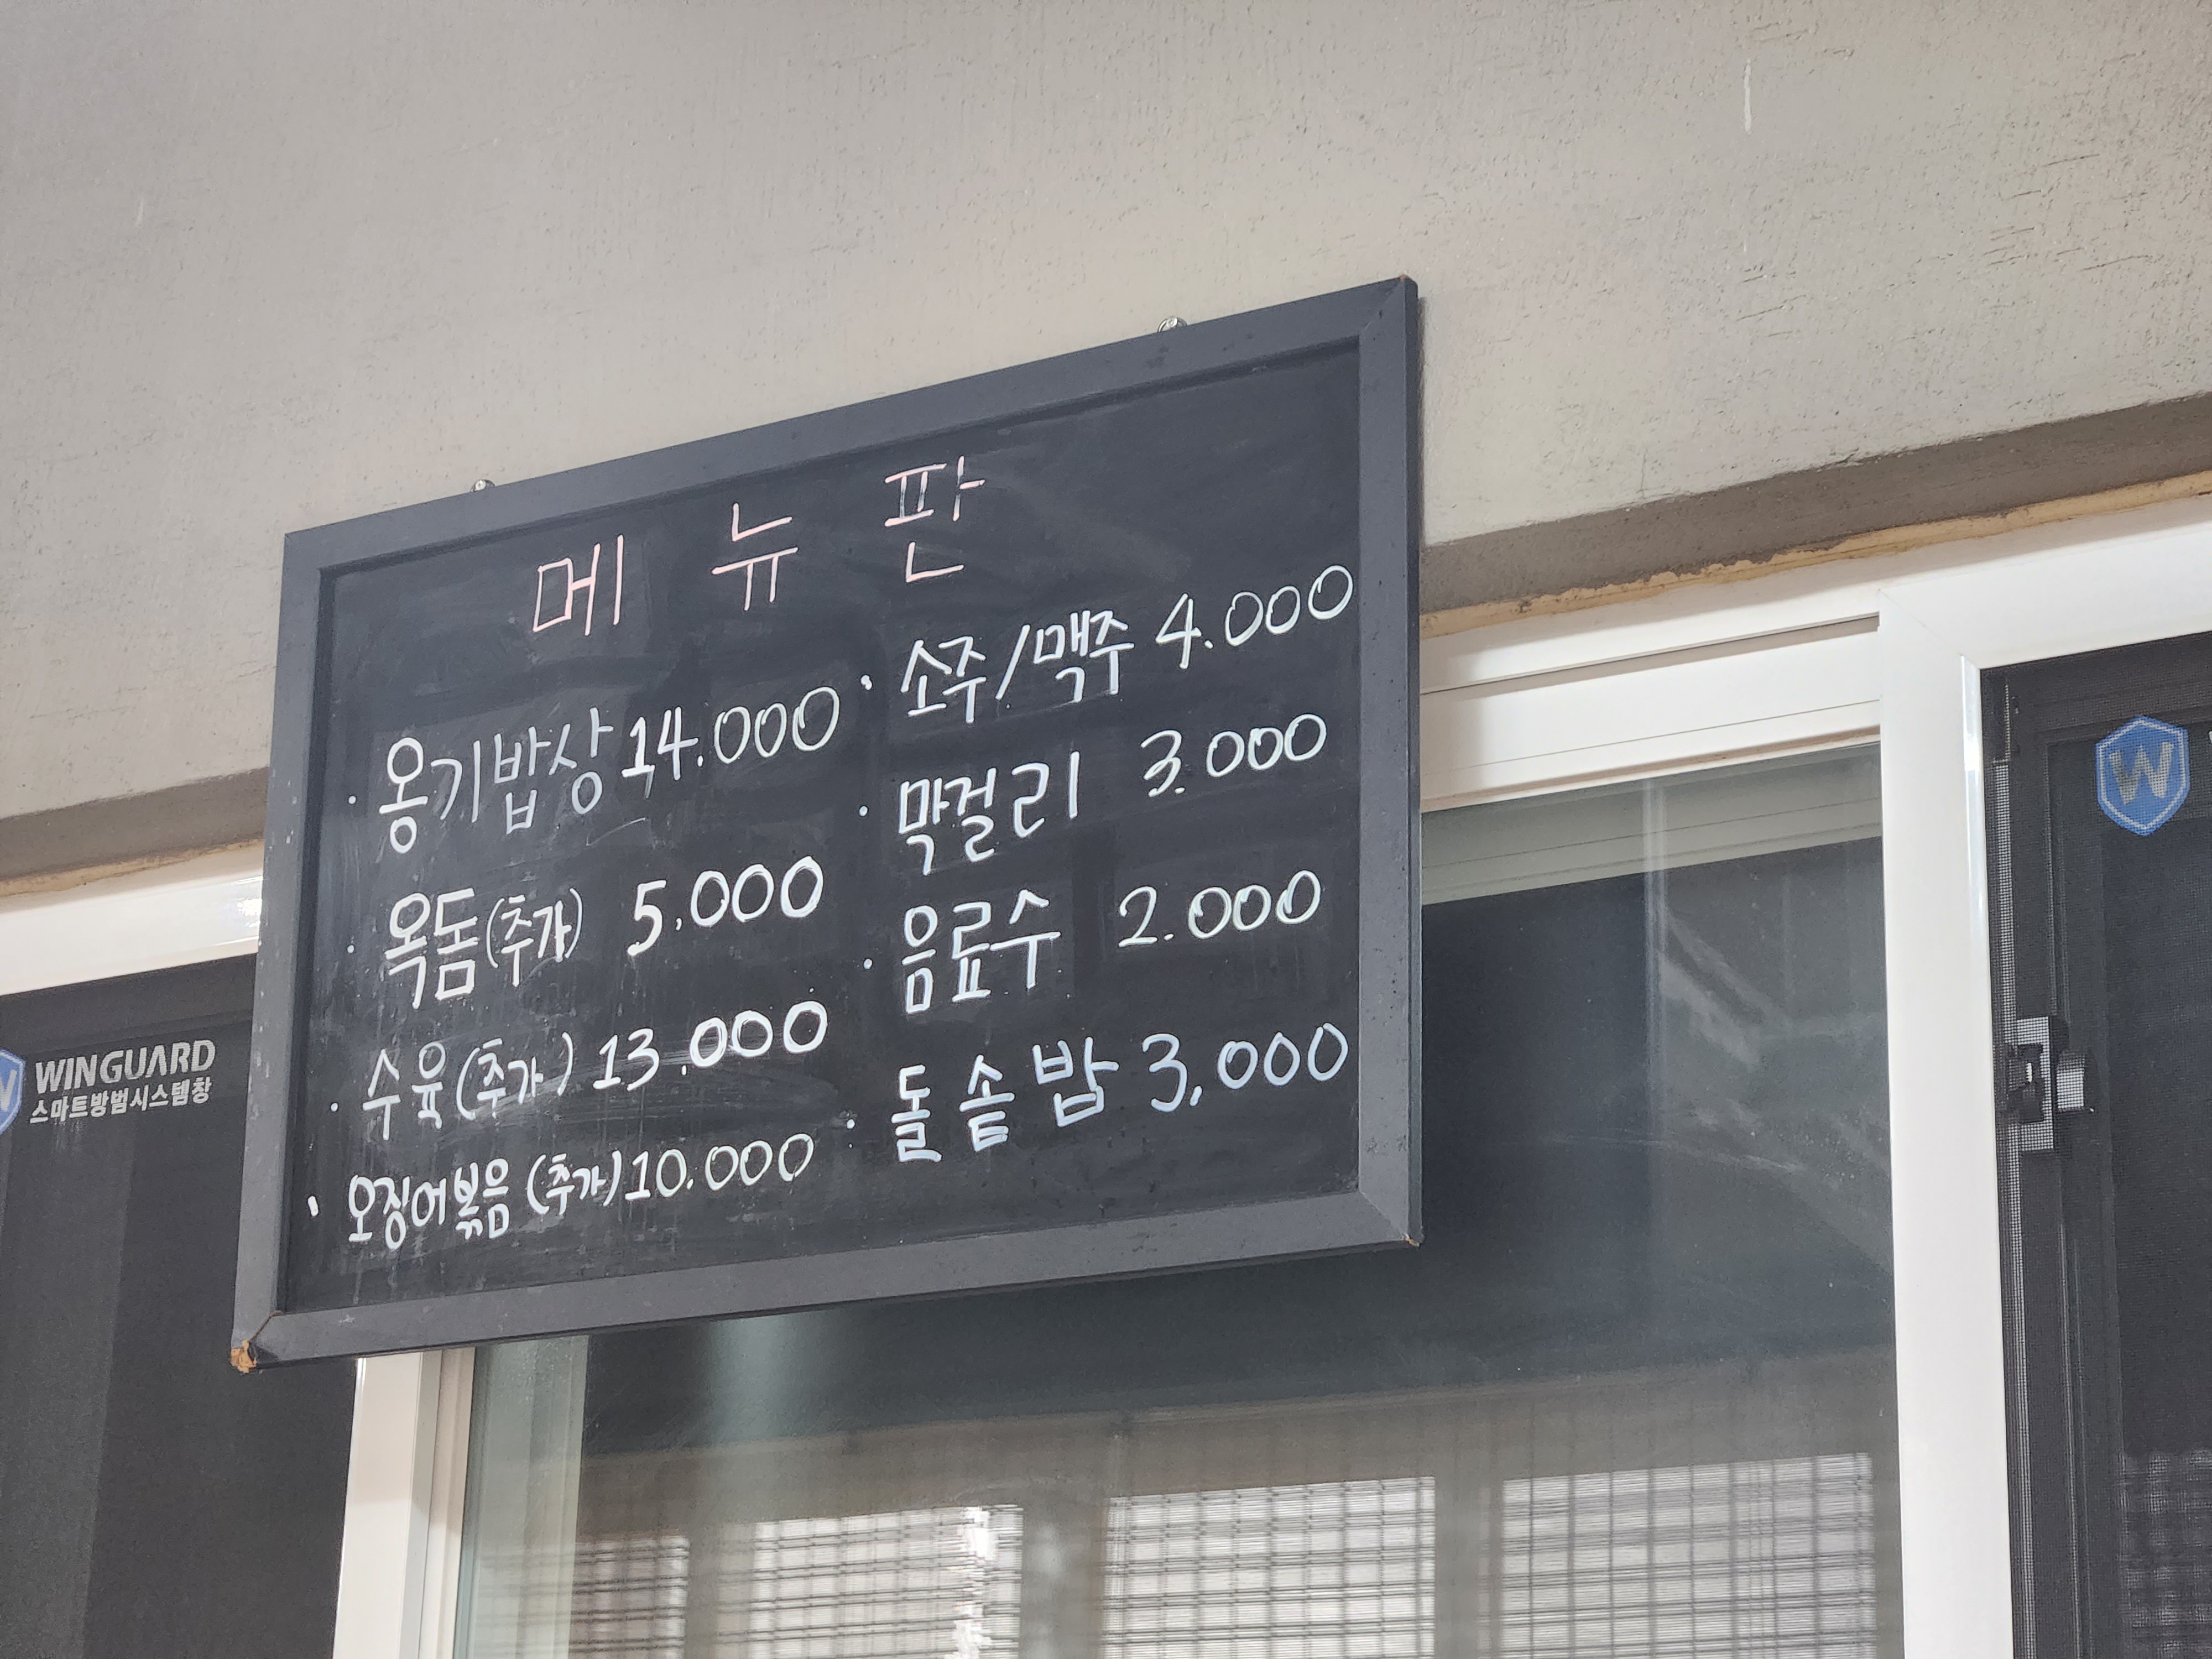 메 뉴 판
· 옹기밥상 14.000
· 옥돔(추가) 5,000
· 수육(추가) 13,000
· 오징어볶음(추가) 10.000
· 소주/맥주 4.000
· 막걸리 3.000
· 음료수 2.000
· 돌솥밥 3,000
WINGUARD
스마트방범시스템창
W